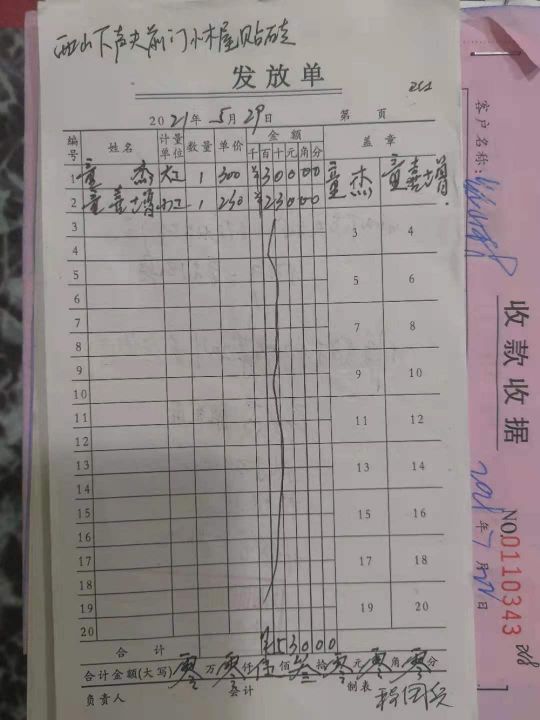 西山下声夫前门小木屋贴砖
发放单
2021年5月29日 第 页
编号 姓名 计量单位 数量 单价 金额 盖章
千百十元角分
1 童杰 大工 1 300 ¥30000 童杰 童喜增
2 童喜增 小工 1 230 ¥23000
3 3 4
4
5 5 6
6
7 7 8
8
9 9 10
10
11 11 12
12
13 13 14
14
15 15 16
16
17 17 18
18
19 19 20
20
合计 ¥53000
合计金额(大写) 零万零仟伍佰叁拾零元零角零分
负责人 会计 制表
客户名称:
收款收据
年7月 日
NO.0110343
268